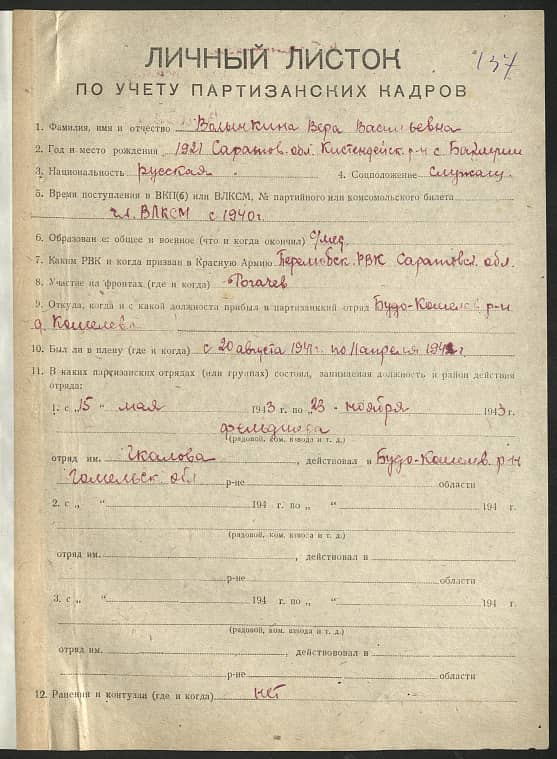 137
ЛИЧНЫЙ ЛИСТОК
ПО УЧЕТУ ПАРТИЗАНСКИХ КАДРОВ
1. Фамилия, имя и отчество Валынкина Вера Васильевна
2. Год и место рождения 1921 Саратов. обл. Кистендейск. р-н с
3. Национальность русская 4. Соцположение служащ.
5. Время поступления в ВКП(б) или ВЛКСМ, № партийного или комсомольского билета
чл. ВЛКСМ с 1940 г.
6. Образован е: общее и военное (что и когда окончил) с/мед
7. Каким РВК и когда призван в Красную Армию РВК Саратовск. обл.
8. Участие на фронтах (где и когда) Рогачев
9. Откуда, когда и с какой должности прибыл в партизанский отряд Будо-Кошелев р-н
д. Кошелево
10. Был ли в плену (где и когда) с 20 августа 1941 г. по 11 апреля
11. В каких партизанских отрядах (или группах) состоял, занимаемая должность и район действия
отряда:
1. с „15 “ мая 1943 г. по „23 “ ноября 1943 г.
(рядовой, ком. взвода и т. д.)
отряд им. Чкалова , действовал в Будо-Кошелев. р-н
Гомельск. обл р-не области
2. с „ “ 194 г. по „ “ 194 г.
(рядовой, ком. взвода и т. д.)
отряд им. , действовал в
р-не области
3. с „ “ 194 г. по „ “ 194 г.
(рядовой, ком. взвода и т. д.)
отряд им. , действовал в
р-не области
12. Ранения и контузии (где и когда) нет